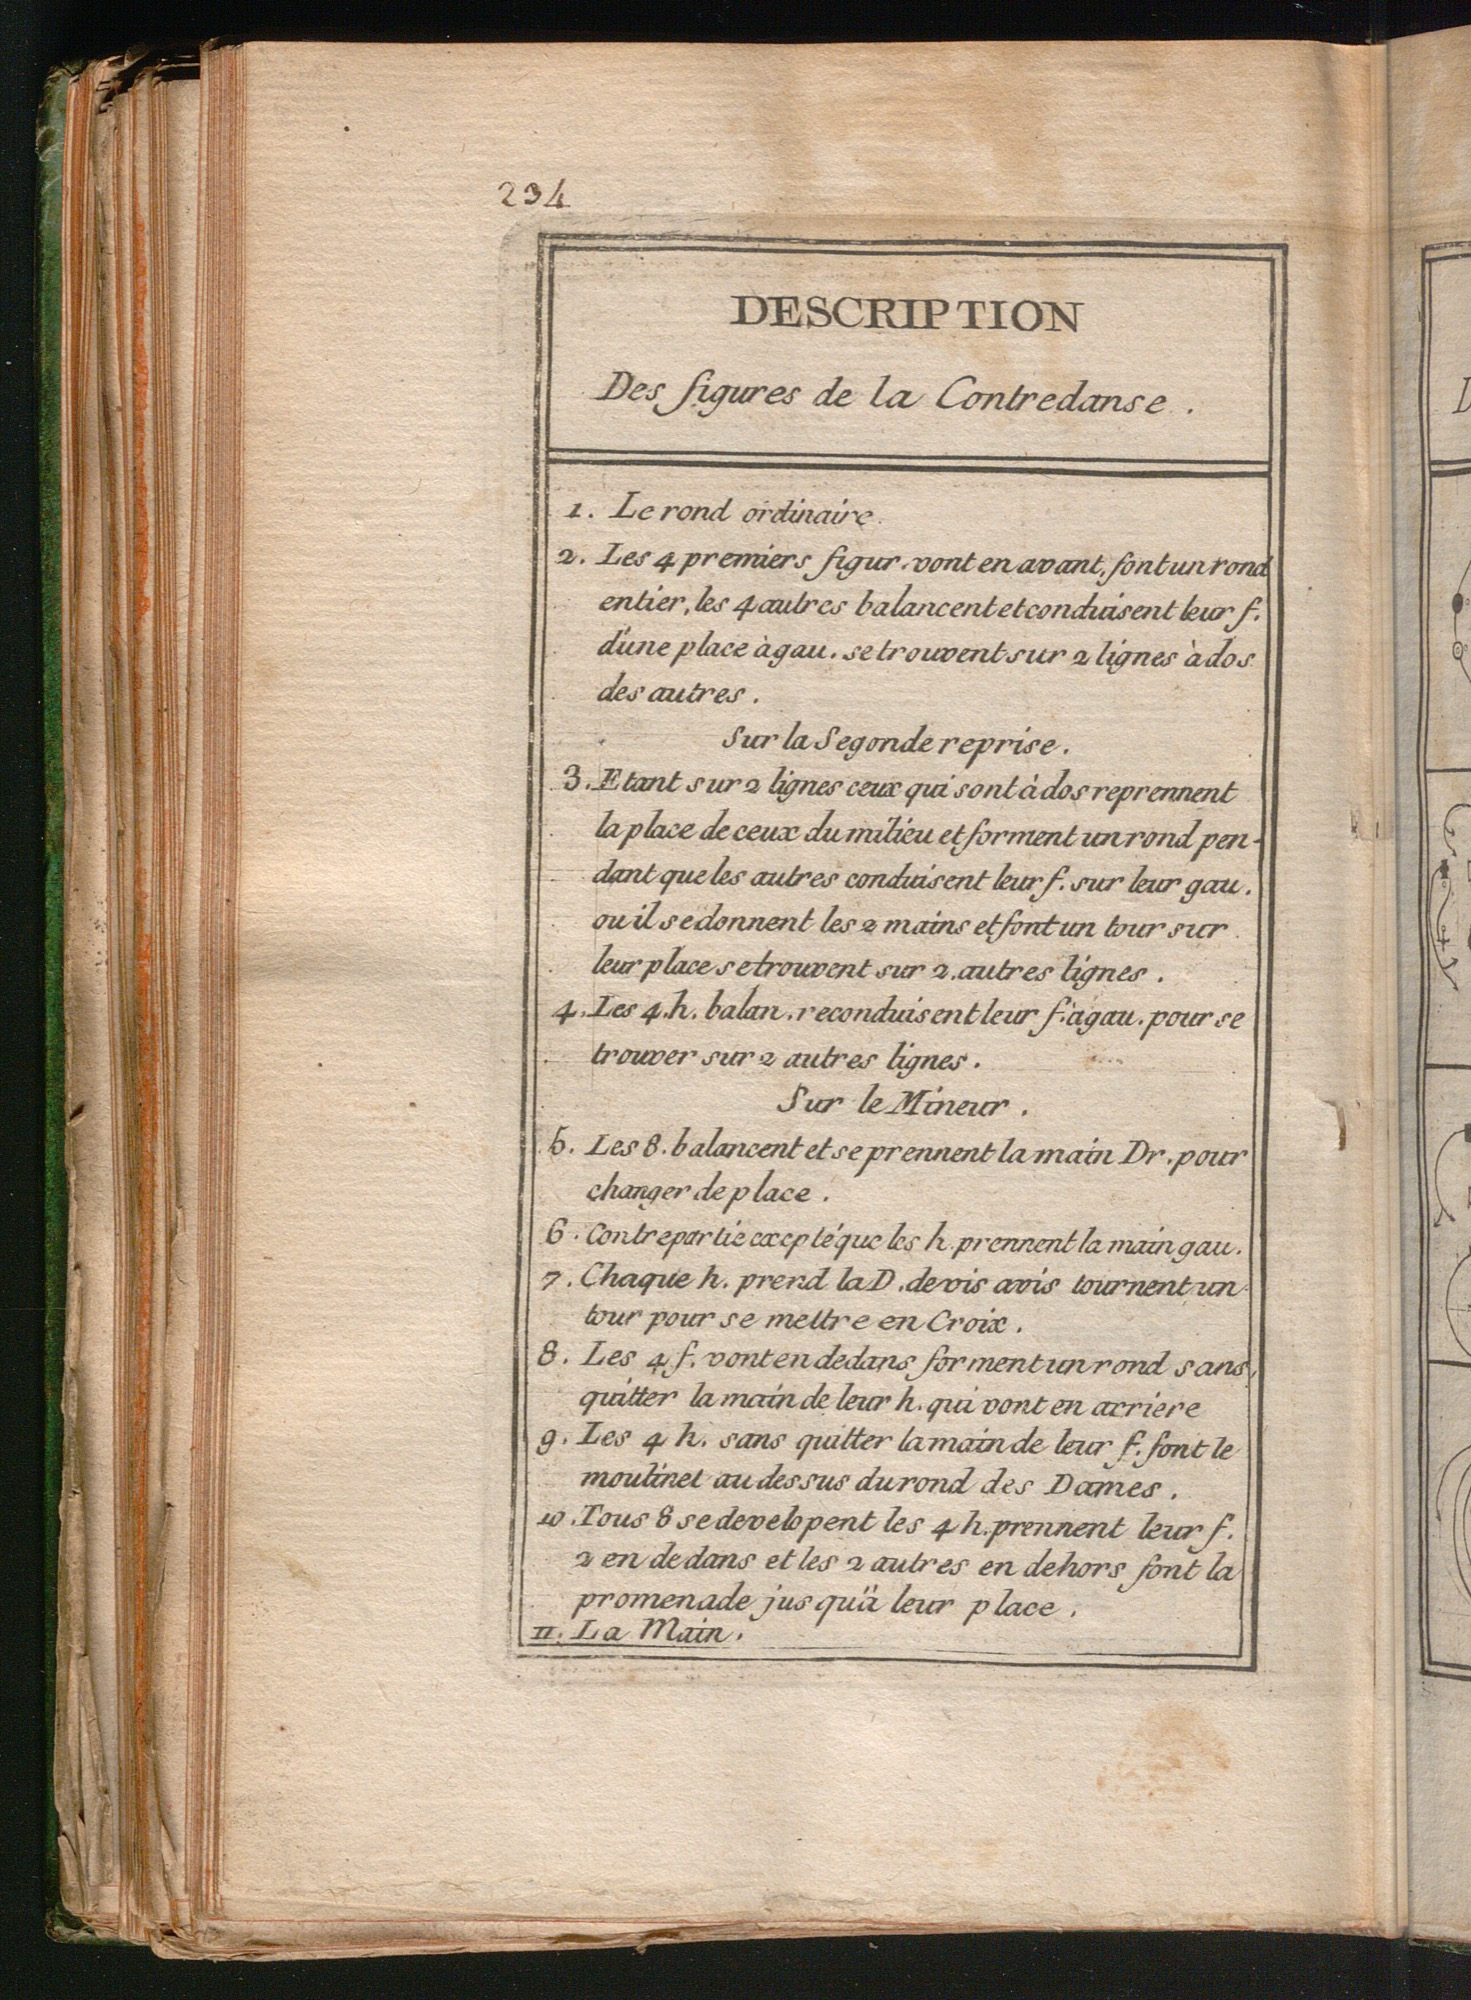 234
DESCRIPTION
Des figures de la Contredanse.
1. Le rond ordinaire.
2. Les 4 premiers figur. vont en avant, font un rond
entier, les 4 autres balancent et conduisent leur f.
d'une place à gau. se trouvent sur 2 lignes à dos
des autres.
Sur la Segonde reprise.
3. Etant sur 2 lignes ceux qui sont à dos reprennent
la place de ceux du milieu et forment un rond pen-
dant que les autres conduisent leur f. sur leur gau.
ou il se donnent les 2 mains et font un tour sur
leur place se trouvent sur 2. autres lignes.
4. Les 4. h. balan. reconduisent leur f. à gau. pour se
trouver sur 2 autres lignes.
Sur le Mineur.
5. Les 8. balancent et se prennent la main Dr. pour
changer de place.
6. Contrepartie excepté que les h. prennent la main gau.
7. Chaque h. prend la D. de vis avis tournent un
tour pour se mettre en Croix.
8. Les 4 f. vont en dedans forment un rond sans
quitter la main de leur h. qui vont en arriere
9. Les 4 h. sans quitter la main de leur f. font le
moulinet au dessus du rond des Dames.
10. Tous 8 se developent les 4 h. prennent leur f.
2 en dedans et les 2 autres en dehors font la
promenade jusqu'à leur place.
11. La Main.